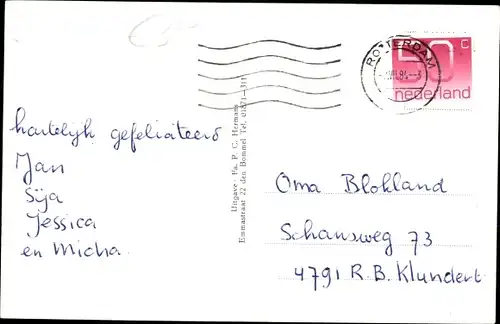 ROTTERDAM
50 c
nederland
hartelijk gefeliciteerd
Jan
Sija
Jessica
en Micha
Uitgave: Fa. P. C. Hermans
Emmastraat 22 den Bommel Tel. 01871-311
Oma Blokland
Schansweg 73
4791 R.B. Klundert